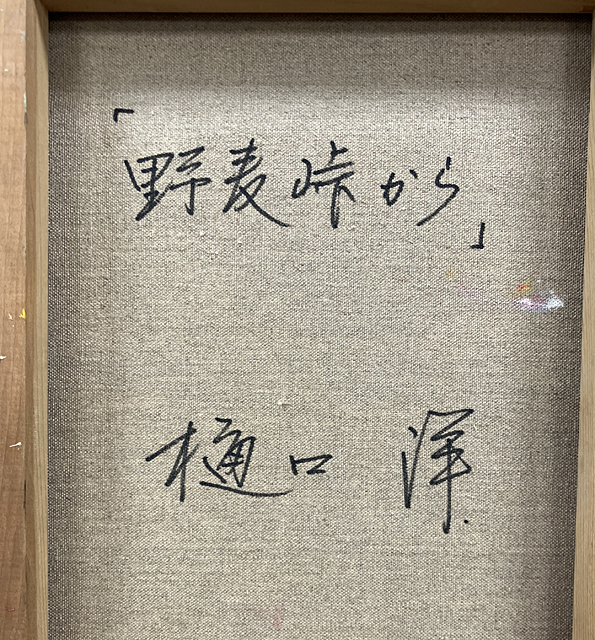 「野麦峠から」
樋口 洋